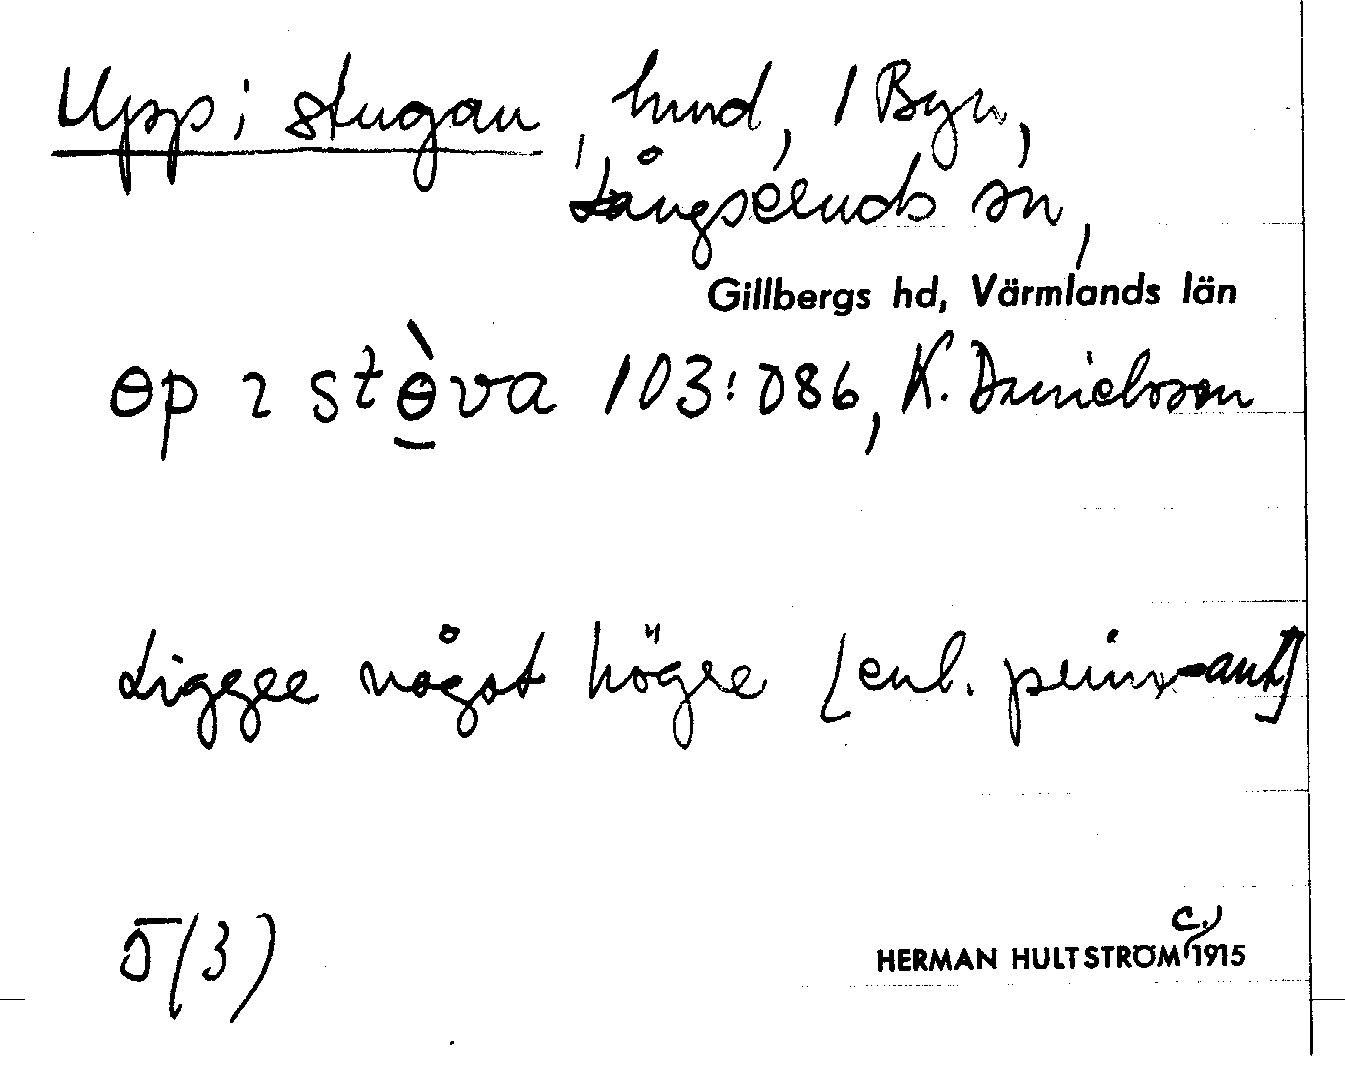 Upp i stugan, hmd, 1 Byn,
Långseruds sn,
Gillbergs hd, Värmlands län
ɵp ɩ stɵ̠̀va 103:086, K. Danielsson
Ligger något högre [enl. primärant]
5(3)
c.)
HERMAN HULTSTRÖM 1915